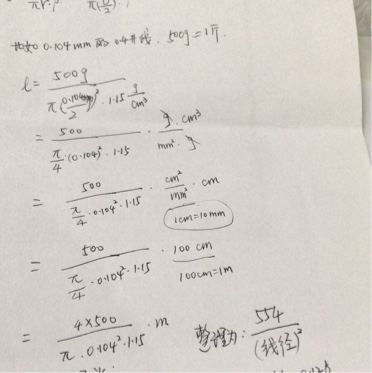 πr²
π(D/2)²
比如 0.104mm 的 0.4# 线. 500g = 1斤.
l = 500g / (π(0.104mm/2)² · 1.15 g/cm³)
= 500 / (π/4 · (0.104)² · 1.15) · g · cm³ / (mm² · g)
= 500 / (π/4 · 0.104² · 1.15) · cm²/mm² · cm
1cm = 10mm
= 500 / (π/4 · 0.104² · 1.15) · 100 cm
100cm = 1m
= 4×500 / (π · 0.104² · 1.15) · m 整理为: 554 / (线径)²